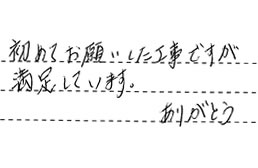 初めてお願いした工事ですが
満足しています。
ありがとう